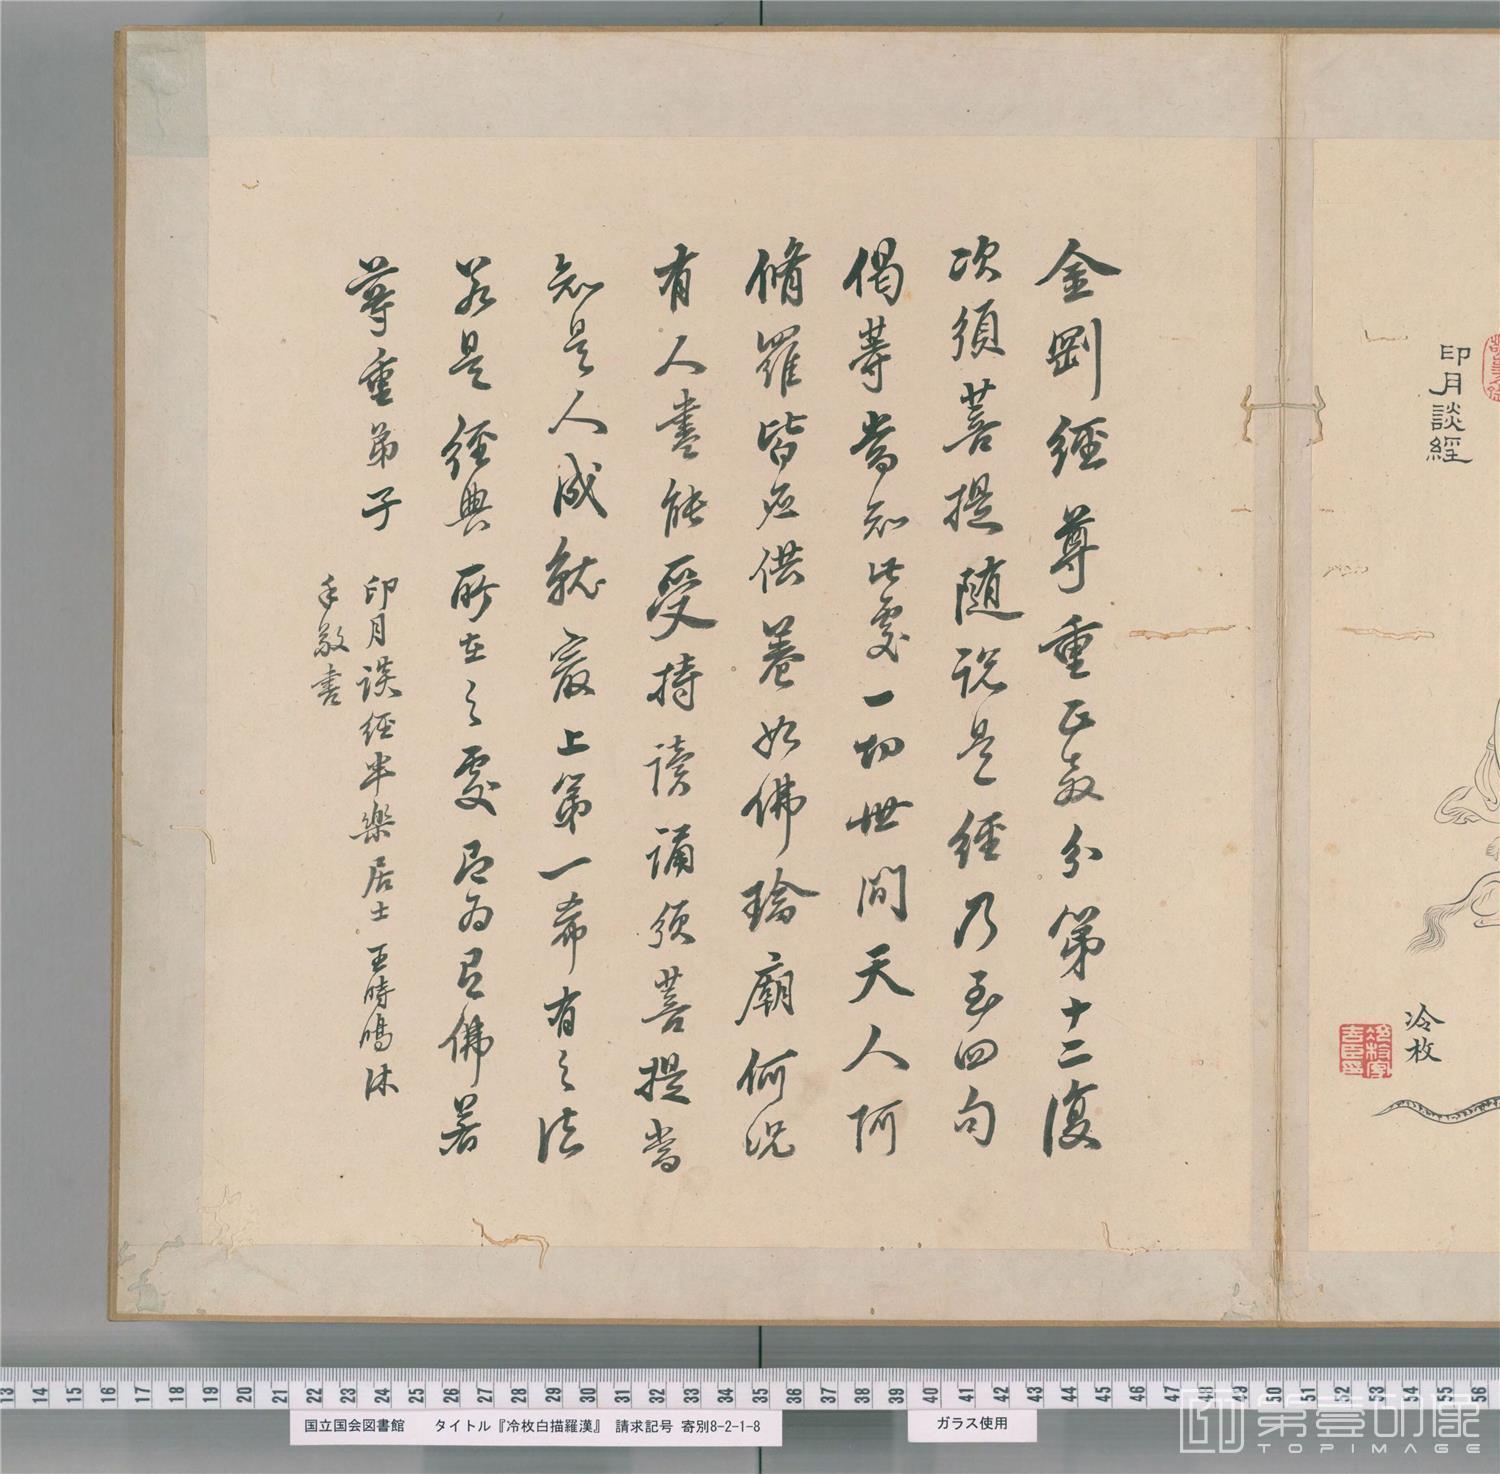 印月談經
冷枚
金剛經尊重正教分第十二復
次須菩提随說是經乃至四句
偈等當知此處一切世間天人阿
脩羅皆應供養如佛塔廟何況
有人盡能受持讀誦須菩提當
知是人成就最上第一希有之法
若是經典所在之處即為有佛若
尊重弟子
印月談經半樂居士王時鳴沐
手敬書
13 14 15 16 17 18 19 20 21 22 23 24 25 26 27 28 29 30 31 32 33 34 35 36 37 38 39 40 41 42 43 44 45 46 47 48 49 50 51 52 53 54 55 56
国立国会図書館 タイトル『冷枚白描羅漢』 請求記号 寄別8-2-1-8
ガラス使用
第壹印像
TOPIMAGE